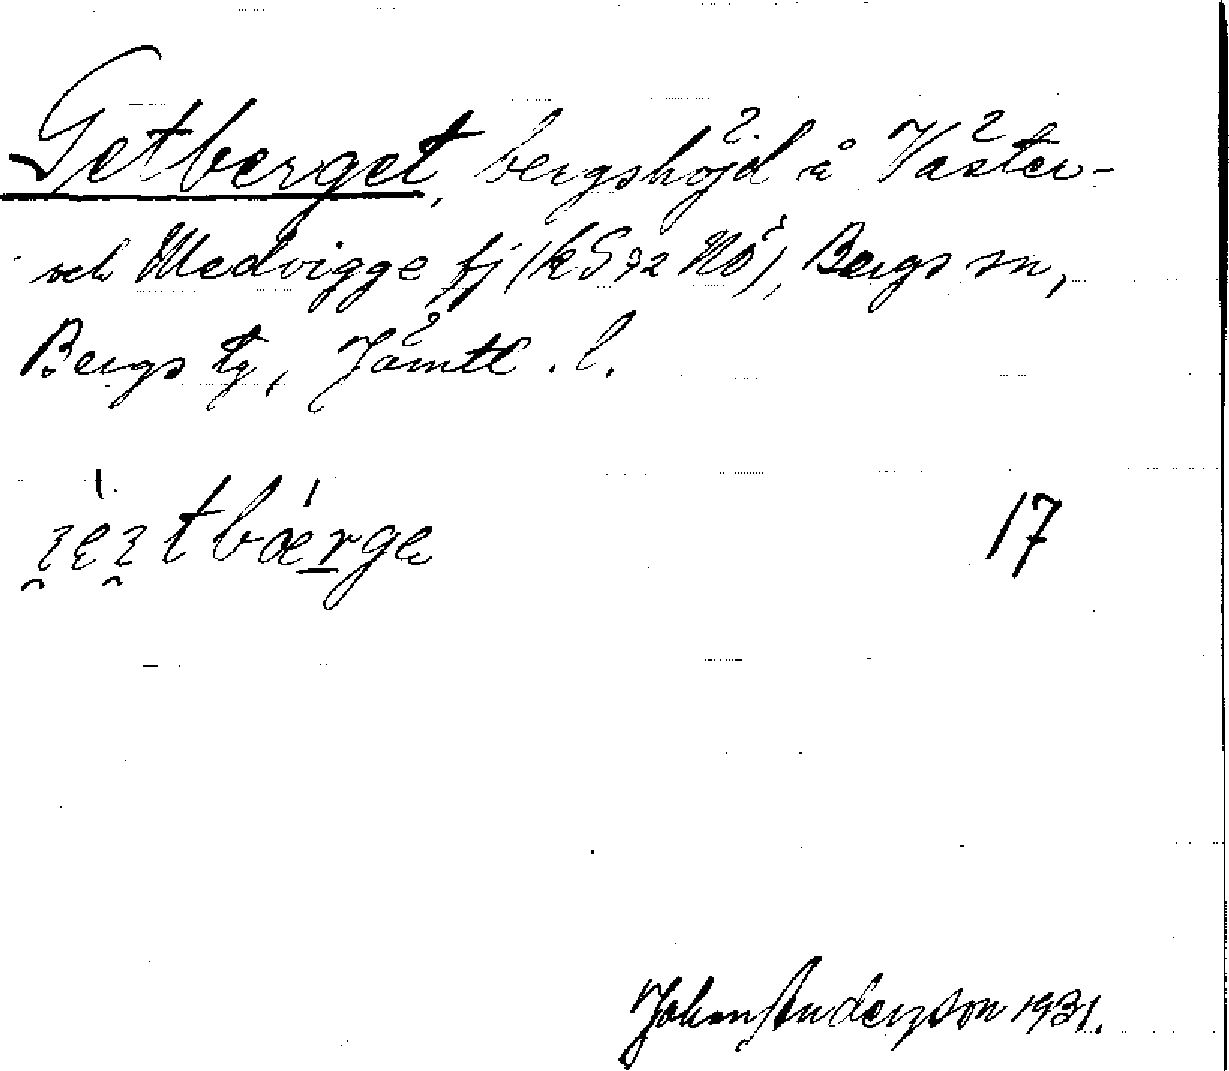 Getberget, bergshöjd å Väster-
och Medvigge fj (kS 92 NÖ), Bergs sn,
Bergs tg, Jämtl. l.
tbærge
17
Johan Anderson 1931.